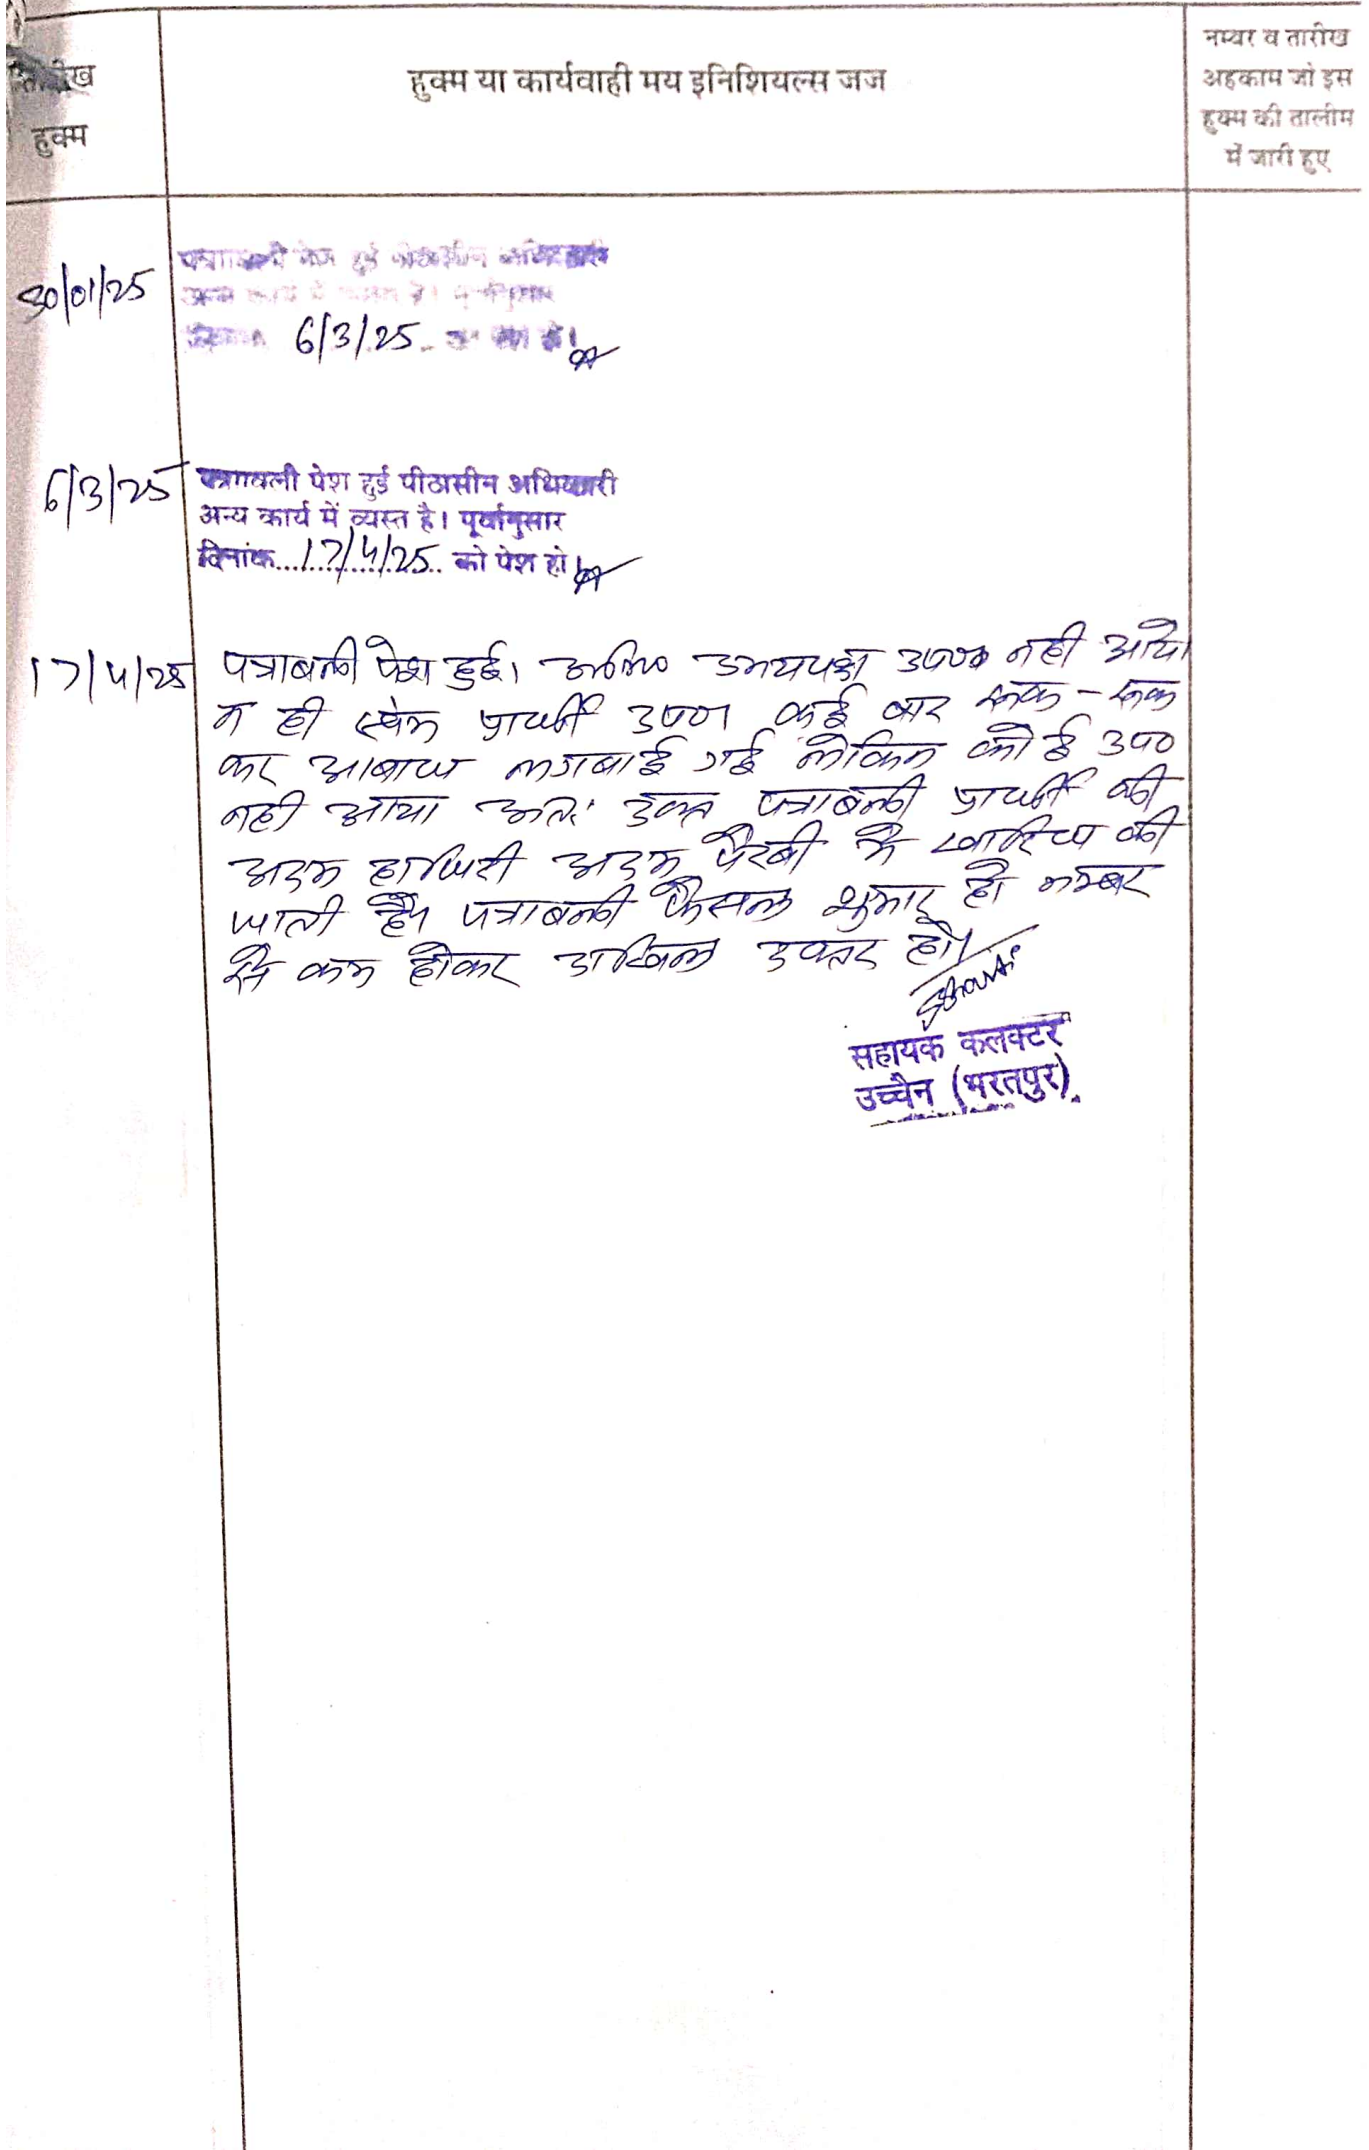 तारीख
हुक्म
हुक्म या कार्यवाही मय इनिशियल्स जज
नम्बर व तारीख
अहकाम जो इस
हुक्म की तालीम
में जारी हुए
30/01/25
पत्रावली पेश हुई पीठासीन अधिकारी
अन्य कार्य में व्यस्त है। पूर्वानुसार
दिनांक 6/3/25 को पेश हो।
6/3/25
पत्रावली पेश हुई पीठासीन अधिकारी
अन्य कार्य में व्यस्त है। पूर्वानुसार
दिनांक...17/4/25... को पेश हो।
17/4/25
पत्राबली पेश हुई। अभि० उभयपक्ष उप० नही आये
न ही स्वंम प्रार्थी उप० कई बार रूक - रूक
कर आबाज लगबाई गई लेकिन कोई उप०
नही आया अतः उक्त पत्राबली प्रार्थी की
अदम हाजिरी अदम पैरबी मे खारिज की
जाती है। पत्राबली फैसल शुमार हो नम्बर
से कम होकर दाखिल दफ्तर हो।
सहायक कलक्टर
उच्चैन (भरतपुर)